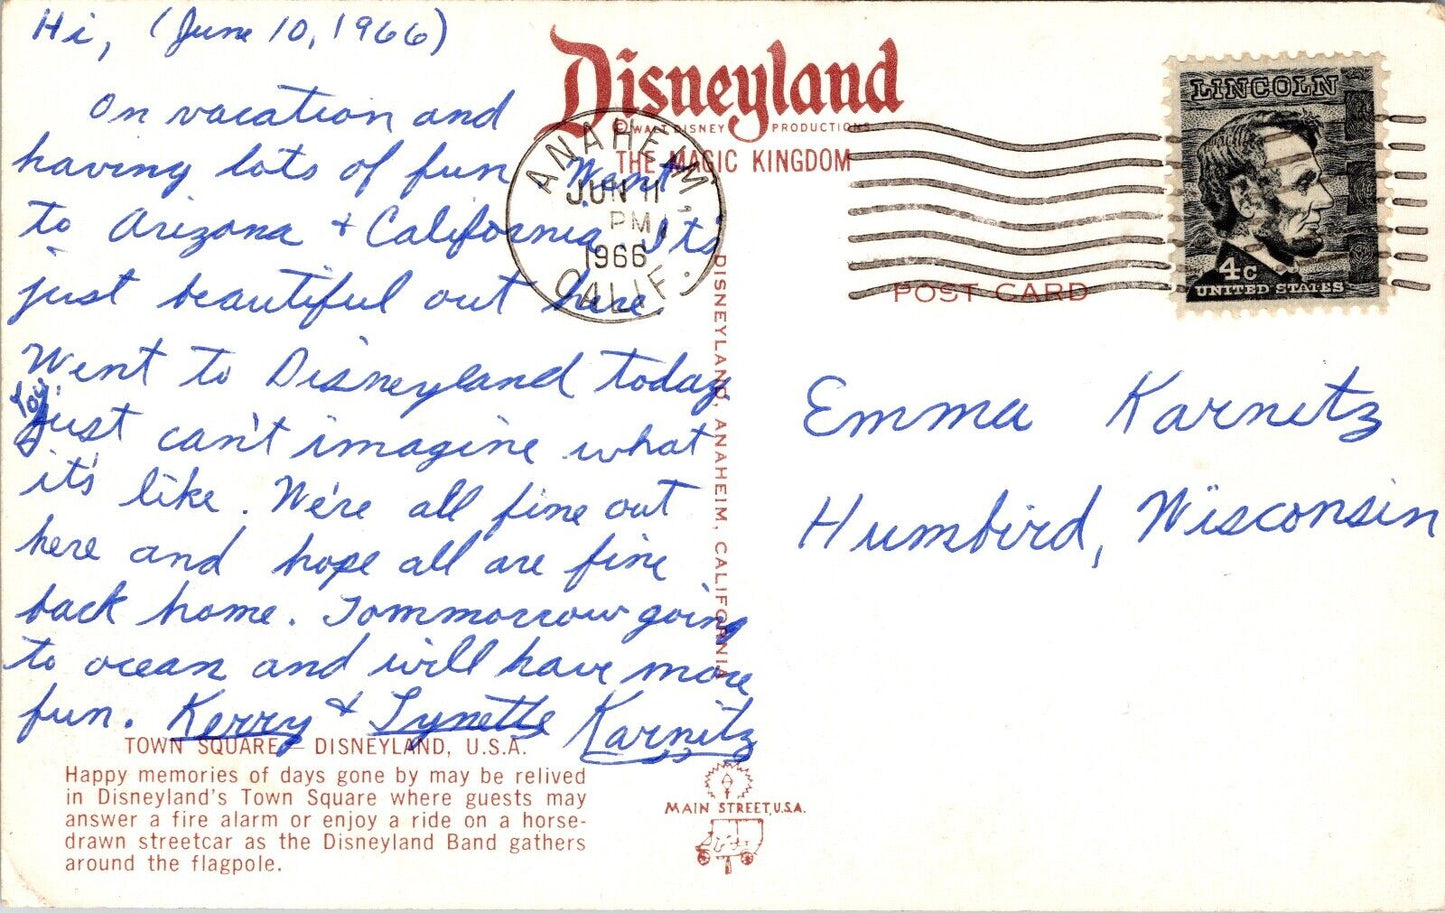 Hi, (June 10, 1966)
On vacation and
having lots of fun. Went
to Arizona & California. It's
just beautiful out here.
Went to Disneyland today,
You
just can't imagine what
it's like. We're all fine out
here and hope all are fine
back home. Tommorrow going
to ocean and will have more
fun. Kerry & Lynette Karnitz
TOWN SQUARE — DISNEYLAND, U.S.A.
Happy memories of days gone by may be relived
in Disneyland's Town Square where guests may
answer a fire alarm or enjoy a ride on a horse-
drawn streetcar as the Disneyland Band gathers
around the flagpole.
Disneyland
© WALT DISNEY PRODUCTIONS
THE MAGIC KINGDOM
ANAHEIM, CALIF.
JUN 11
PM
1966
DISNEYLAND, ANAHEIM, CALIFORNIA
MAIN STREET, U.S.A.
LINCOLN
4c
UNITED STATES
POST CARD
Emma Karnitz
Humbird, Wisconsin